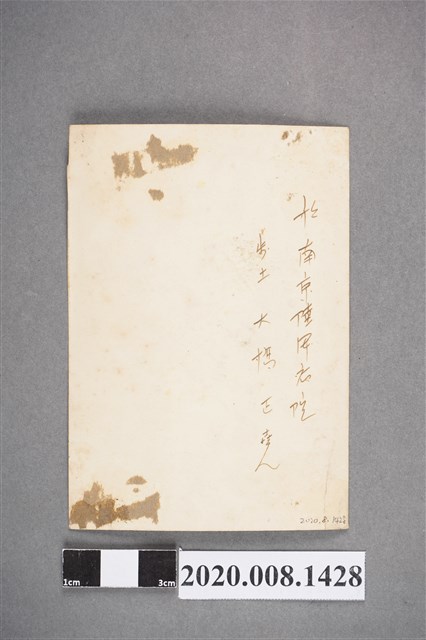 於南京陸軍病院
歩士 大橋正
2020.8.1428
1cm 3cm
2020.008.1428